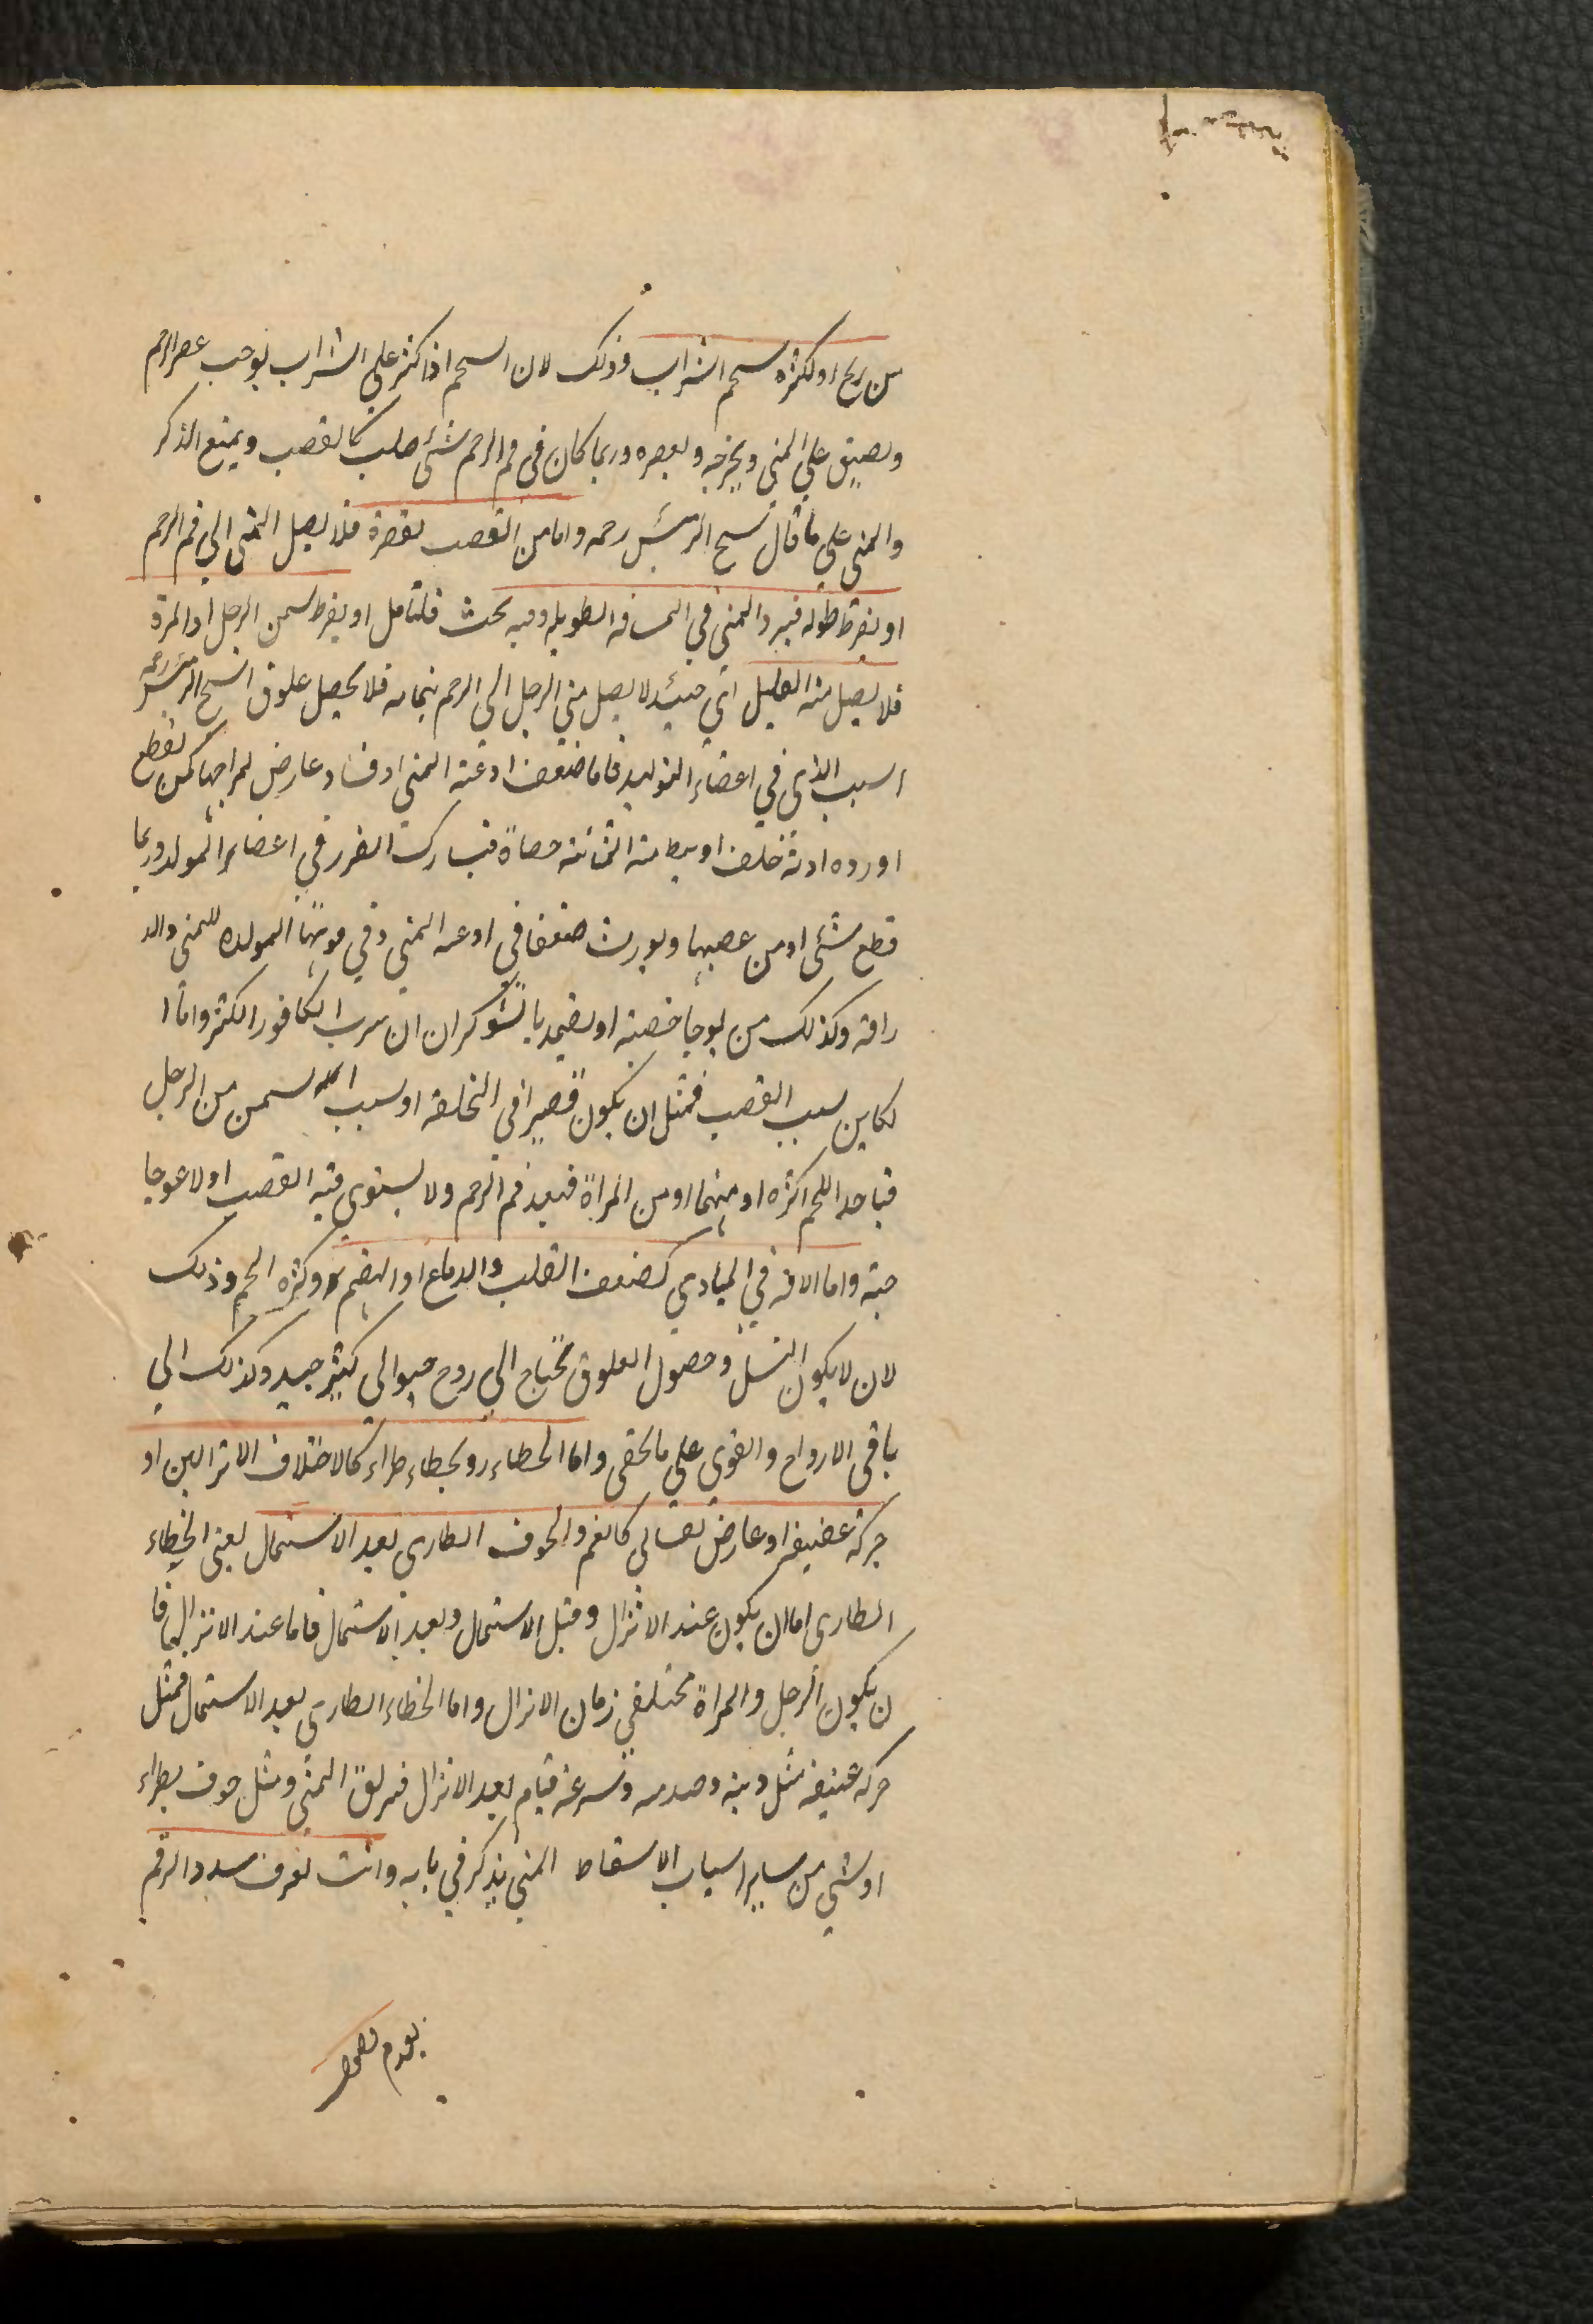 من ريح او لكثرة سحم الثراب وذلك لان السحم اذا كثر على الثراب يوجب عصر الرحم
ويضيق على المنى ويخرجه ويعصره وربما كان فى فم الرحم شئ صلب كالقصب ويمنع الذكر
والمنى على ما قال شيخ الرئيس رحمه واما من القصب لقصره فلا يصل المنى الى فم الرحم
او يفرط طوله فيبرد المنى في المسافه الطويله وفيه بحث فلتامل او يفرط سمن الرجل او المرة
فلا يصل منه القليل اي حينئذ لا يصل منى الرجل الى الرحم بتمامه فلا يحصل علوق الشيخ الرئيس رحمه
السبب الذى في اعضاء التوليد فاما ضعف اوعية المنى او فساد عارض لمزاجها كمن يقطع
اورده اذنه خلف او بط منه المثانة حصاة فيشارك الضرر في اعضاء المولد وربما
قطع شئ او من عصبها ويورث ضعفا في اوعيه المنى وفي قوتها المولده للمنى والد
راقه وكذلك من يوجا خصيته او يضمد بالشوكران ان شرب الكافور الكثر واما ا
لكاين سبب القصب فمثل ان يكون قصيرا في الخلقه او سبب السمن من الرجل
فياخد اللحم اكثره او منهما او من المراة فيبعد فم الرحم ولا يستوى فيه القصب او لاعوجا
جه واما الافه في المبادي كضعف القلب والدماغ او الهضم وكثره الحم وذلك
لان لا يكون النسل وحصول العلوق محتاج الى روح حيوانى كثير جيد وكذلك الى
باقى الارواح والقوى على ما يخفى واما الخطاء رو بخطاء طراء كالاختلاف الانزالين او
حركة عنيفه او عارض نفسانى كالغم والخوف الطارى بعد الاستمال يعنى الخطاء
الطارى اما ان يكون عند الانزال وقبل الاستمال وبعد الاستمال فاما عند الانزال فا
ن يكون الرجل والمراة مختلفي زمان الانزال واما الخطاء الطارى بعد الاستمال فمثل
حركه عنيفه مثل وثبه وصدمه وسرعة قيام بعد الانزال فيزلق المنى ومثل خوف يطراء
او شي من ساير اسباب الاسقاط المنى يذكر في بابه وانت تعرف سدد الرحم